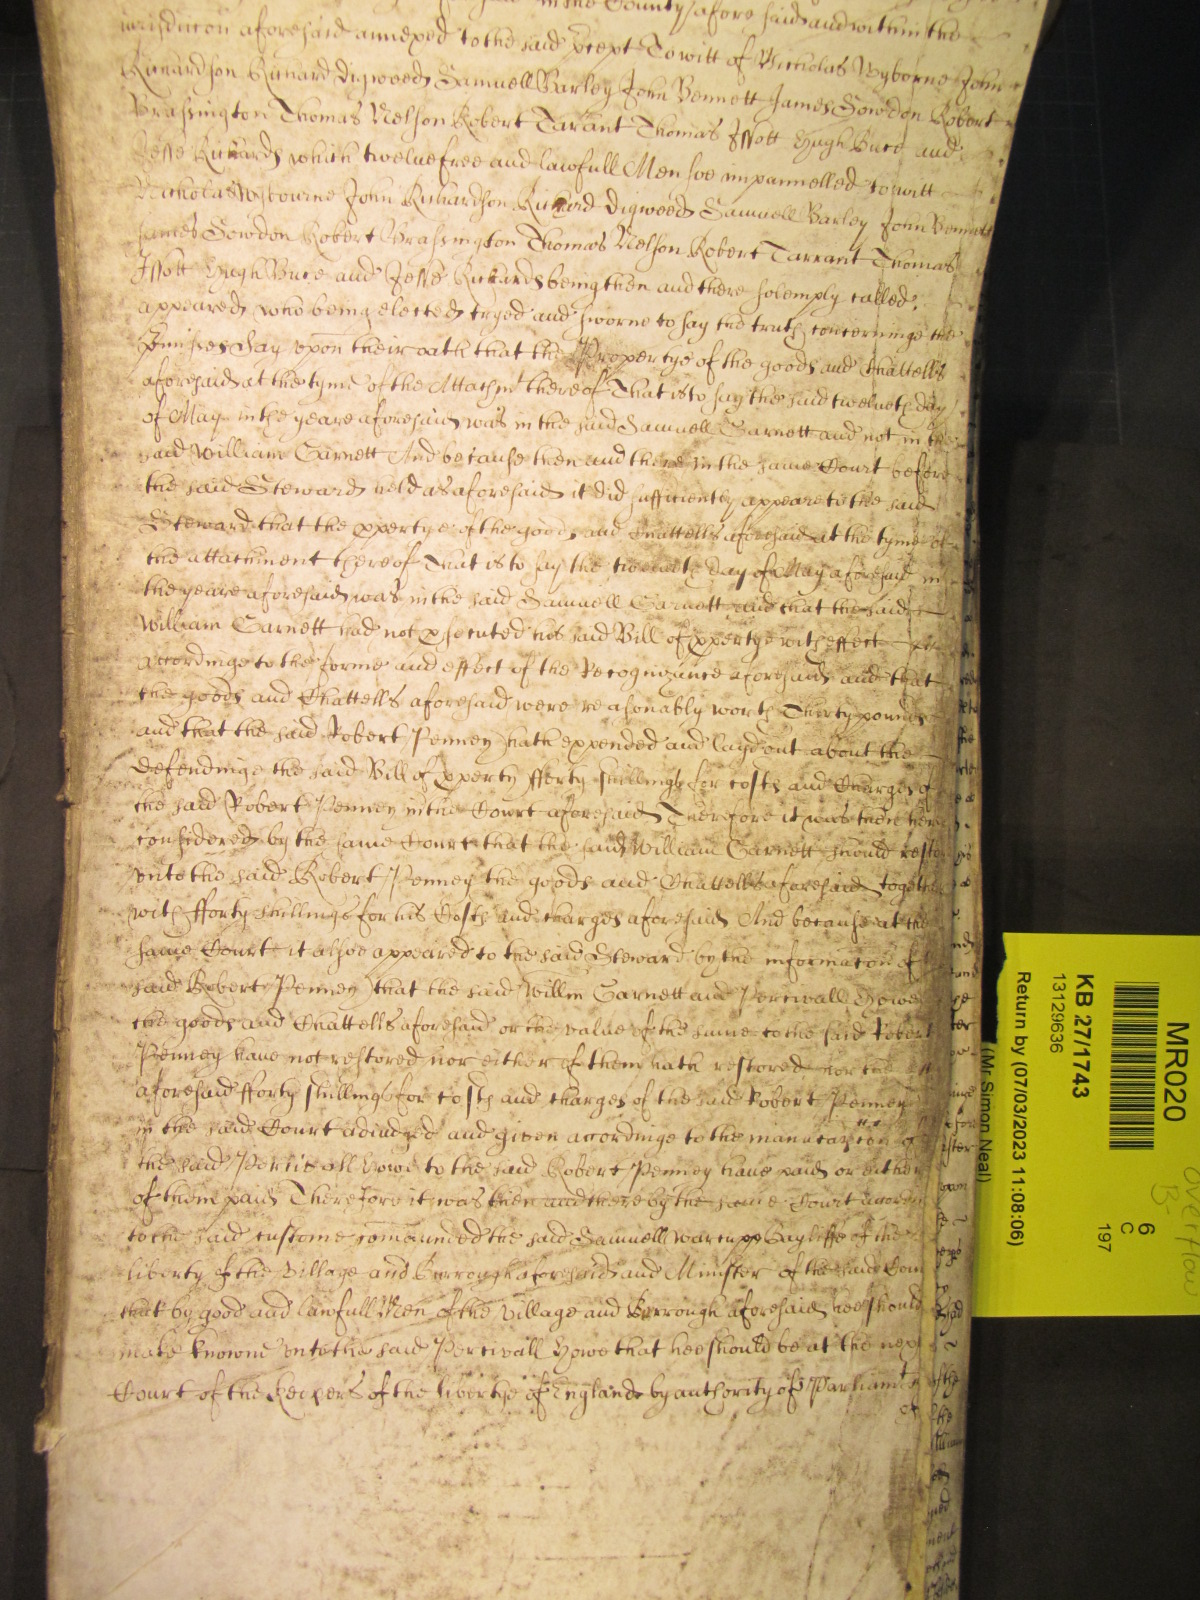 in the County afore said and within the
Jurisdiccon aforesaid annexed to the said pcept To witt of Nicholas Wyborne John
Richardson Richard Digweed Samuell Barley John Bennett James Sowdon Robert
Brassington Thomas Nelson Robert Tarant Thomas Issott Hugh Buce and
Jesse Richards which twelue free and lawfull Men soe impannelled to witt
Nicholas Wybourne John Richardson Richard Digweed Samuell Barley John Bennett
James Sowdon Robert Brassington Thomas Nelson Robert Tarrant Thomas
Issott Hugh Buce and Jesse Richards being then and there solemply called
appeared who being elected tryed and sworne to say the truth concerninge the
pmisses say vpon their oath that the Propertye of the goods and Chattells
aforesaid at the tyme of the Attachmt thereof That is to say the said twelueth day
of May in the yeare aforesaid was in the said Samuell Garnett and not in the
said William Garnett And because then and there in the same Court before
the said Steward held as aforesaid it did sufficiently appeare to the said
Steward that the ppertye of the goods and Chattells aforesaid at the tyme of
the attachment thereof That is to say the twelueth day of May aforesaid in
the yeare aforesaid was in the said Samuell Garnett and that the said
William Garnett had not psecuted his said Bill of ppertye with effect
accordinge to the forme and effect of the Recognizance aforesaid and that
the goods and Chattells aforesaid were reasonably worth Thirty pounds
and that the said Robert Penney hath expended and layd out about the
defendinge the said Bill of pperty fforty shillings for costs and Charges of
the said Robert Penney in the Court aforesaid Therefore it was then there
considered by the same Court that the said William Garnett should restore
vnto the said Robert Penney the goods and Chattells aforesaid together
with fforty shillings for his Costs and charges aforesaid And because at the
same Court it alsoe appeared to the said Steward by the informacon of the
said Robert Penney that the said Willm Garnett and Percivall Howe
the goods and Chattells aforesaid or the value of the same to the said Robert
Penney haue not restored nor either of them hath restored nor the
aforesaid fforty shillings for costs and charges of the said Robert Penney
in the said Court adiudged and given accordinge to the manucapcon of
the said Percivall Howe to the said Robert Penney haue paid or either
of them paid Therefore it was then and there by the same Court accordin
to the said custome comaunded the said Samuell Bayliffe of the
liberty of the Village and Burrough aforesaid and Minister of the said Court
that by good and lawfull Men of the Village and Burrough aforesaid hee should
make knowne vnto the said Percivall Howe that hee should be at the next
Court of the Keepers of the libertye of England by authority of Parliamt
MR020
6
C
197
KB 27/1743
13129636
Return by (07/03/2023 11:08:06)
(Mr Simon Neal)
overflow
B-